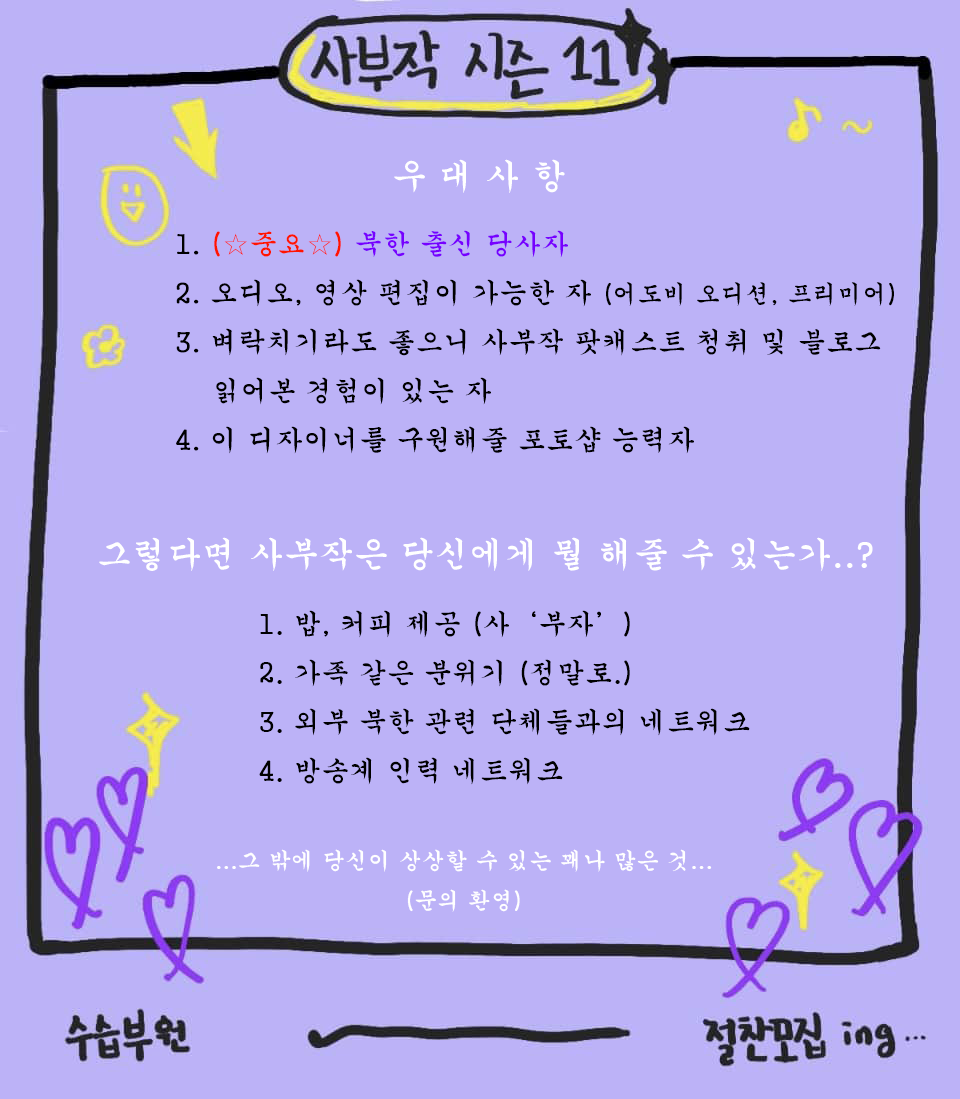 사부작 시즌 11
우대사항
1. (☆중요☆) 북한 출신 당사자
2. 오디오, 영상 편집이 가능한 자 (어도비 오디션, 프리미어)
3. 벼락치기라도 좋으니 사부작 팟캐스트 청취 및 블로그
읽어본 경험이 있는 자
4. 이 디자이너를 구원해줄 포토샵 능력자
그렇다면 사부작은 당신에게 뭘 해줄 수 있는가..?
1. 밥, 커피 제공 (사 ‘부자’ )
2. 가족 같은 분위기 (정말로.)
3. 외부 북한 관련 단체들과의 네트워크
4. 방송계 인력 네트워크
...그 밖에 당신이 상상할 수 있는 꽤나 많은 것...
(문의 환영)
수습부원
절찬모집 ing...